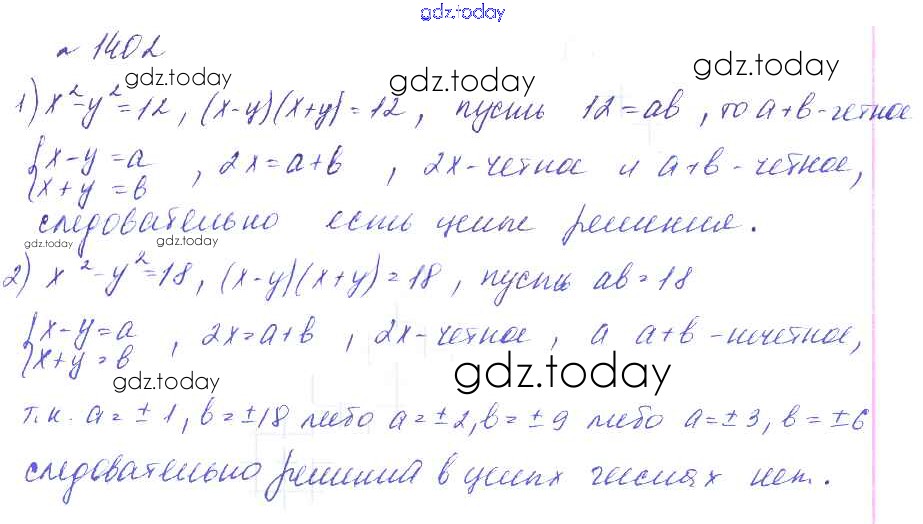 gdz.today
№ 1402
gdz.today gdz.today gdz.today
1) x²-y²=12, (x-y)(x+y)=12, пусть 12=ab, то a+b-четное
{x-y=a
{x+y=b , 2x=a+b , 2x-четное и a+b-четное,
следовательно есть целые решения.
gdz.today gdz.today
2) x²-y²=18, (x-y)(x+y)=18, пусть ab=18
{x-y=a
{x+y=b , 2x=a+b , 2x-четное, а a+b-нечетное,
gdz.today gdz.today
т.к. a=±1, b=±18 либо a=±2, b=±9 либо a=±3, b=±6
следовательно решений в целых числах нет.